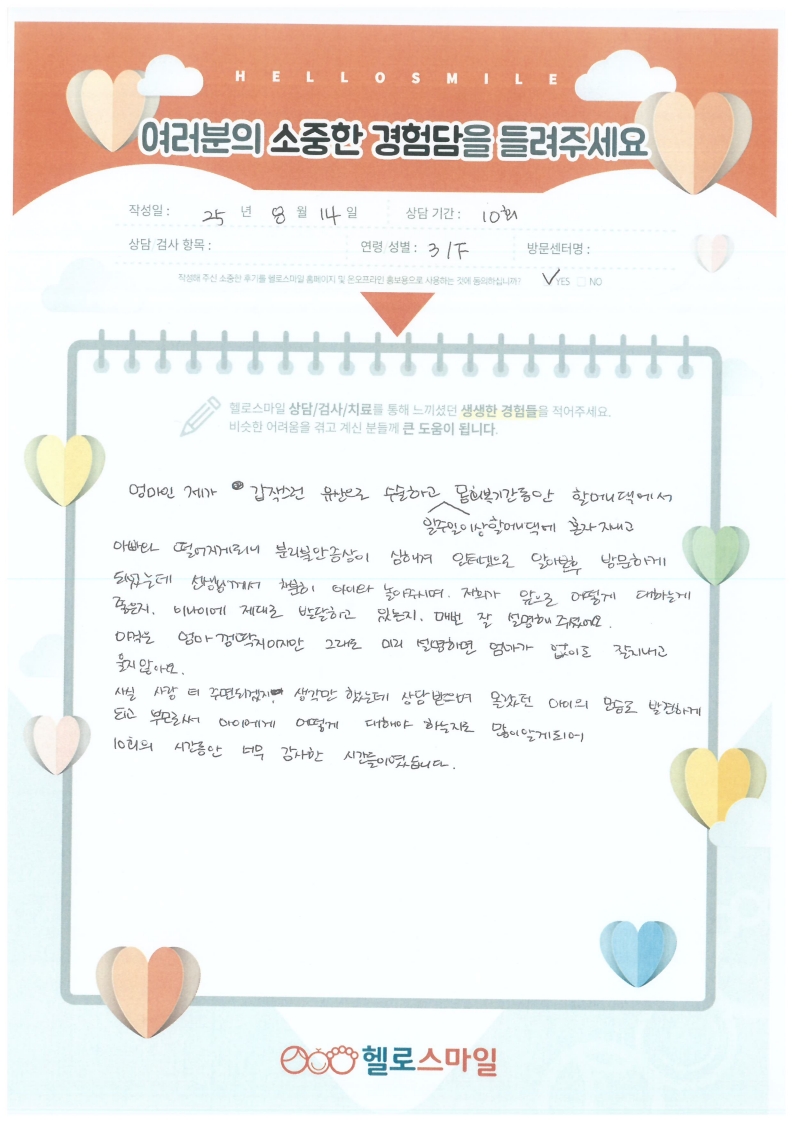 HELLOSMILE
여러분의 소중한 경험담을 들려주세요
작성일 : 25 년 8 월 14 일 상담 기간 : 10회
상담 검사 항목 : 연령 성별 : 3/F 방문센터명 :
작성해 주신 소중한 후기를 헬로스마일 홈페이지 및 온오프라인 홍보용으로 사용하는 것에 동의하십니까? ✓YES □ NO
헬로스마일 상담/검사/치료를 통해 느끼셨던 생생한 경험들을 적어주세요.
비슷한 어려움을 겪고 계신 분들께 큰 도움이 됩니다.
엄마인 제가 갑작스런 유산으로 수술하고 몸회복기간동안 할머니댁에서
일주일이상할머니댁에 혼자 지내고
아빠와 떨어지게되니 분리불안증상이 심해져 인터넷으로 알아본후 방문하게
되었는데 선생님께서 차분히 아이와 놀아주시며. 저희가 앞으로 어떻게 대하는게
좋은지. 이나이에 제대로 발달하고 있는지. 매번 잘 설명해 주셨어요.
아직은 엄마 껌딱지이지만 그래도 미리 설명하면 엄마가 없이도 잘지내고
울지않아요.
사실 사랑 더 주면되겠지 생각만 했는데 상담받으며 몰랐던 아이의 모습도 발견하게
되고 부모로써 아이에게 어떻게 대해야 하는지도 많이알게되어
10회의 시간동안 너무 감사한 시간들이였습니다.
헬로스마일